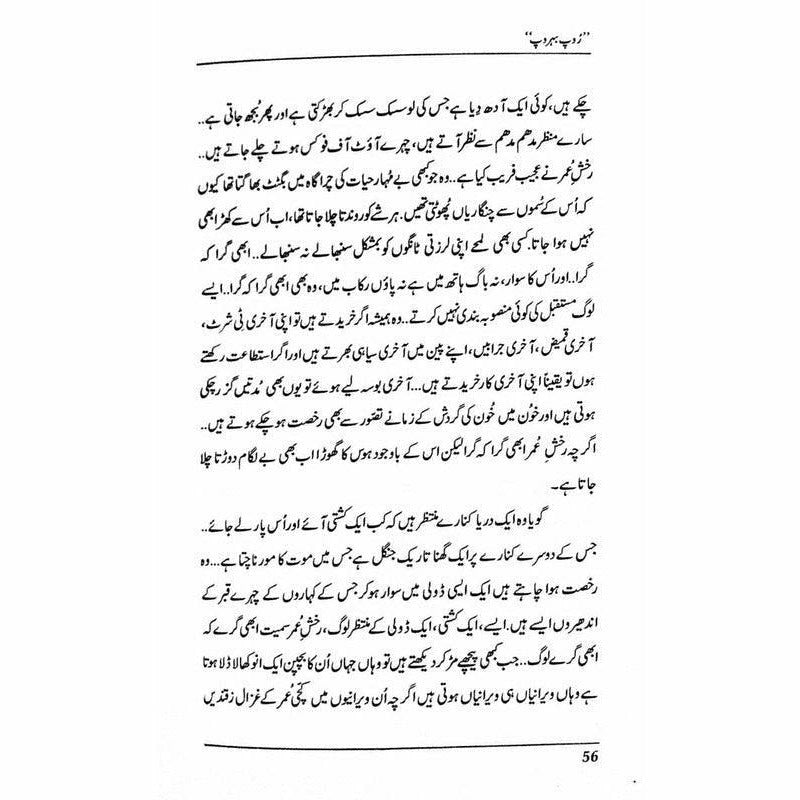 ”رُوپ بہروپ“
چکے ہیں، کوئی ایک آدھ دِیا ہے جس کی لو سسک سسک کر بھڑکتی ہے اور پھر بُجھ جاتی ہے..
سارے منظر مدھم مدھم سے نظر آتے ہیں، چہرے آؤٹ آف فوکس ہوتے چلے جاتے ہیں..
رخشِ عُمر نے عجیب فریب کیا ہے.. وہ جو کبھی بے مُہار حیات کی چراگاہ میں بگٹٹ بھاگتا تھا کیوں
کہ اُس کے سُموں سے چنگاریاں پُھوٹتی تھیں. ہر شے کو روندتا چلا جاتا تھا، اب اُس سے کھڑا بھی
نہیں ہوا جاتا. کسی بھی لمحے اپنی لرزتی ٹانگوں کو بمشکل سنبھالے نہ سنبھالے.. ابھی گرا کہ
گرا.. اور اُس کا سوار، نہ باگ ہاتھ میں ہے نہ پاؤں رکاب میں، وہ بھی ابھی گرا کہ گرا.. ایسے
لوگ مستقبل کی کوئی منصوبہ بندی نہیں کرتے.. وہ ہمیشہ اگر خریدتے ہیں تو اپنی آخری ٹی شرٹ،
آخری قمیض، آخری جرابیں، اپنے پین میں آخری سیاہی بھرتے ہیں اور اگر استطاعت رکھتے
ہوں تو یقیناً اپنی آخری کار خریدتے ہیں... آخری بوسہ لیے ہوئے تو یوں بھی مُدتیں گزر چکی
ہوتی ہیں اور خوُن میں خُون کی گردش کے زمانے تصّور سے بھی رخصت ہو چکے ہوتے ہیں..
اگرچہ رخشِ عُمر ابھی گرا کہ گرا لیکن اس کے باوجود ہوس کا گھوڑا اب بھی بے لگام دوڑتا چلا
جاتا ہے۔
گویا وہ ایک دریا کنارے منتظر ہیں کہ کب ایک کشتی آئے اور اُس پار لے جائے..
جس کے دوسرے کنارے پر ایک گھنا تاریک جنگل ہے جس میں موت کا مور ناچتا ہے... وہ
رخصت ہوا چاہتے ہیں ایک ایسی ڈولی میں سوار ہو کر جس کے کہاروں کے چہرے قبر کے
اندھیروں ایسے ہیں. ایسے، ایک کشتی، ایک ڈولی کے منتظر لوگ، رخشِ عُمر سمیت ابھی گرے کہ
ابھی گرے لوگ.. جب کبھی پیچھے مڑ کر دیکھتے ہیں تو وہاں جہاں اُن کا بچپن ایک انوکھا لاڈلا ہوتا
ہے وہاں ویرانیاں ہی ویرانیاں ہوتی ہیں اگرچہ اُن ویرانیوں میں کچّی عُمر کے غزال زقندیں
56